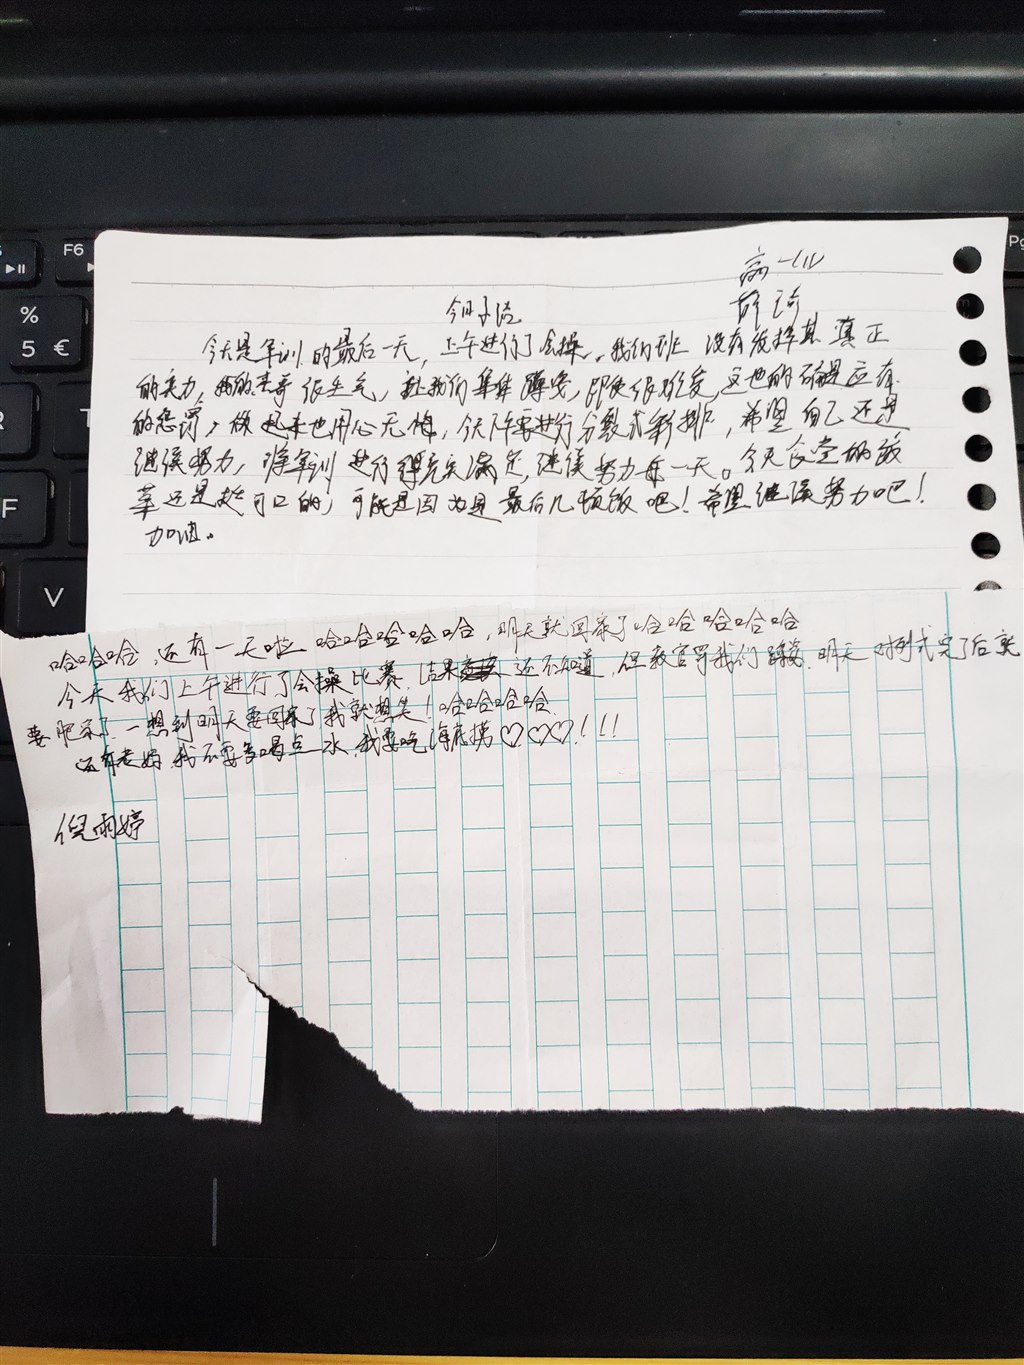 F6
Pg
%
5 €
R
T
F
V
高一(1)
薛琦
今日手记
今天是军训的最后一天，上午进行了会操，我们班没有发挥其真正
的实力，很生气，让我们集体蹲姿，即使很难受，这也的确是应有
的惩罚，做起来也用心无悔，今天下午要进行分裂式彩排，希望自己还是
继续努力，将军训进行得充实满足，继续努力每一天。今天食堂的饭
菜还是挺可口的，可能是因为是最后几顿饭吧！希望继续努力吧！
加油。
哈哈哈，还有一天啦 哈哈哈哈哈，明天就回来了哈哈哈哈哈
今天我们上午进行了会操比赛，结果还不知道，但教官罚我们蹲姿，明天对列式完了后就
要肥来了，一想到明天要回来了我就想笑！哈哈哈哈
还有老妈，我不要多喝点水，我要吃海底捞♡♡♡！！！
倪雨婷